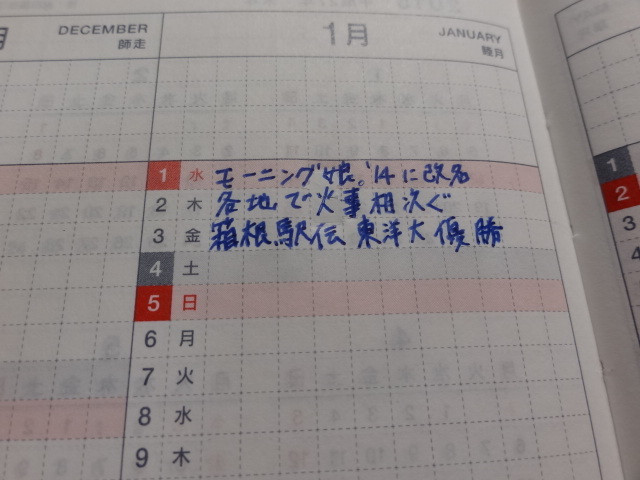 月 DECEMBER
師走
1月 JANUARY
睦月
1 水 モーニング娘。'14に改名
2 木 各地で火事相次ぐ
3 金 箱根駅伝 東洋大優勝
4 土
5 日
6 月
7 火
8 水
9 木
1
2
3
4